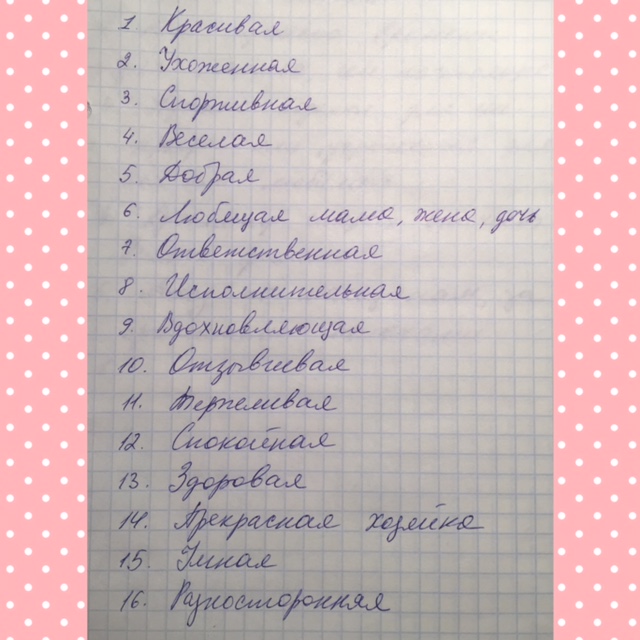 1 Красивая
2. Ухоженная
3. Спортивная
4. Веселая
5. Добрая
6. Любящая мама, жена, дочь
7. Ответственная
8. Исполнительная
9. Вдохновляющая
10. Отзывчивая
11. Терпеливая
12. Спокойная
13. Здоровая
14. Прекрасная хозяйка
15. Умная
16. Разносторонняя